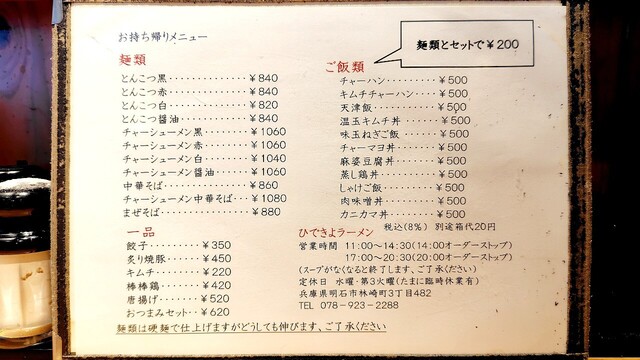 お持ち帰りメニュー
麺類とセットで￥200
麺類
とんこつ黒‥‥‥‥‥‥‥￥840
とんこつ赤‥‥‥‥‥‥‥￥840
とんこつ白‥‥‥‥‥‥‥￥820
とんこつ醤油‥‥‥‥‥‥￥840
チャーシューメン黒‥‥‥￥1060
チャーシューメン赤‥‥‥￥1060
チャーシューメン白‥‥‥￥1040
チャーシューメン醤油‥‥￥1060
中華そば‥‥‥‥‥‥‥￥860
チャーシューメン中華そば‥￥1080
まぜそば‥‥‥‥‥‥‥￥880
一品
餃子‥‥‥‥￥350
炙り焼豚‥‥‥￥450
キムチ‥‥‥‥￥220
棒棒鶏‥‥‥‥￥420
唐揚げ‥‥‥‥￥520
おつまみセット‥￥620
ご飯類
チャーハン‥‥‥‥￥500
キムチチャーハン‥‥￥500
天津飯‥‥‥‥‥￥500
温玉キムチ丼‥‥‥￥500
味玉ねぎご飯‥‥‥￥500
チャーマヨ丼‥‥‥￥500
麻婆豆腐丼‥‥‥‥￥500
蒸し鶏丼‥‥‥‥￥500
しゃけご飯‥‥‥‥￥500
肉味噌丼‥‥‥‥￥500
カニカマ丼‥‥‥‥￥500
税込(8%) 別途箱代20円
ひできよラーメン
営業時間 11:00～14:30(14:00オーダーストップ)
17:00～20:30(20:00オーダーストップ)
(スープがなくなると終了します、ご了承ください)
定休日 水曜・第3火曜(たまに臨時休業有)
兵庫県明石市林崎町3丁目482
TEL 078-923-2288
麺類は硬麺で仕上げますがどうしても伸びます、ご了承ください